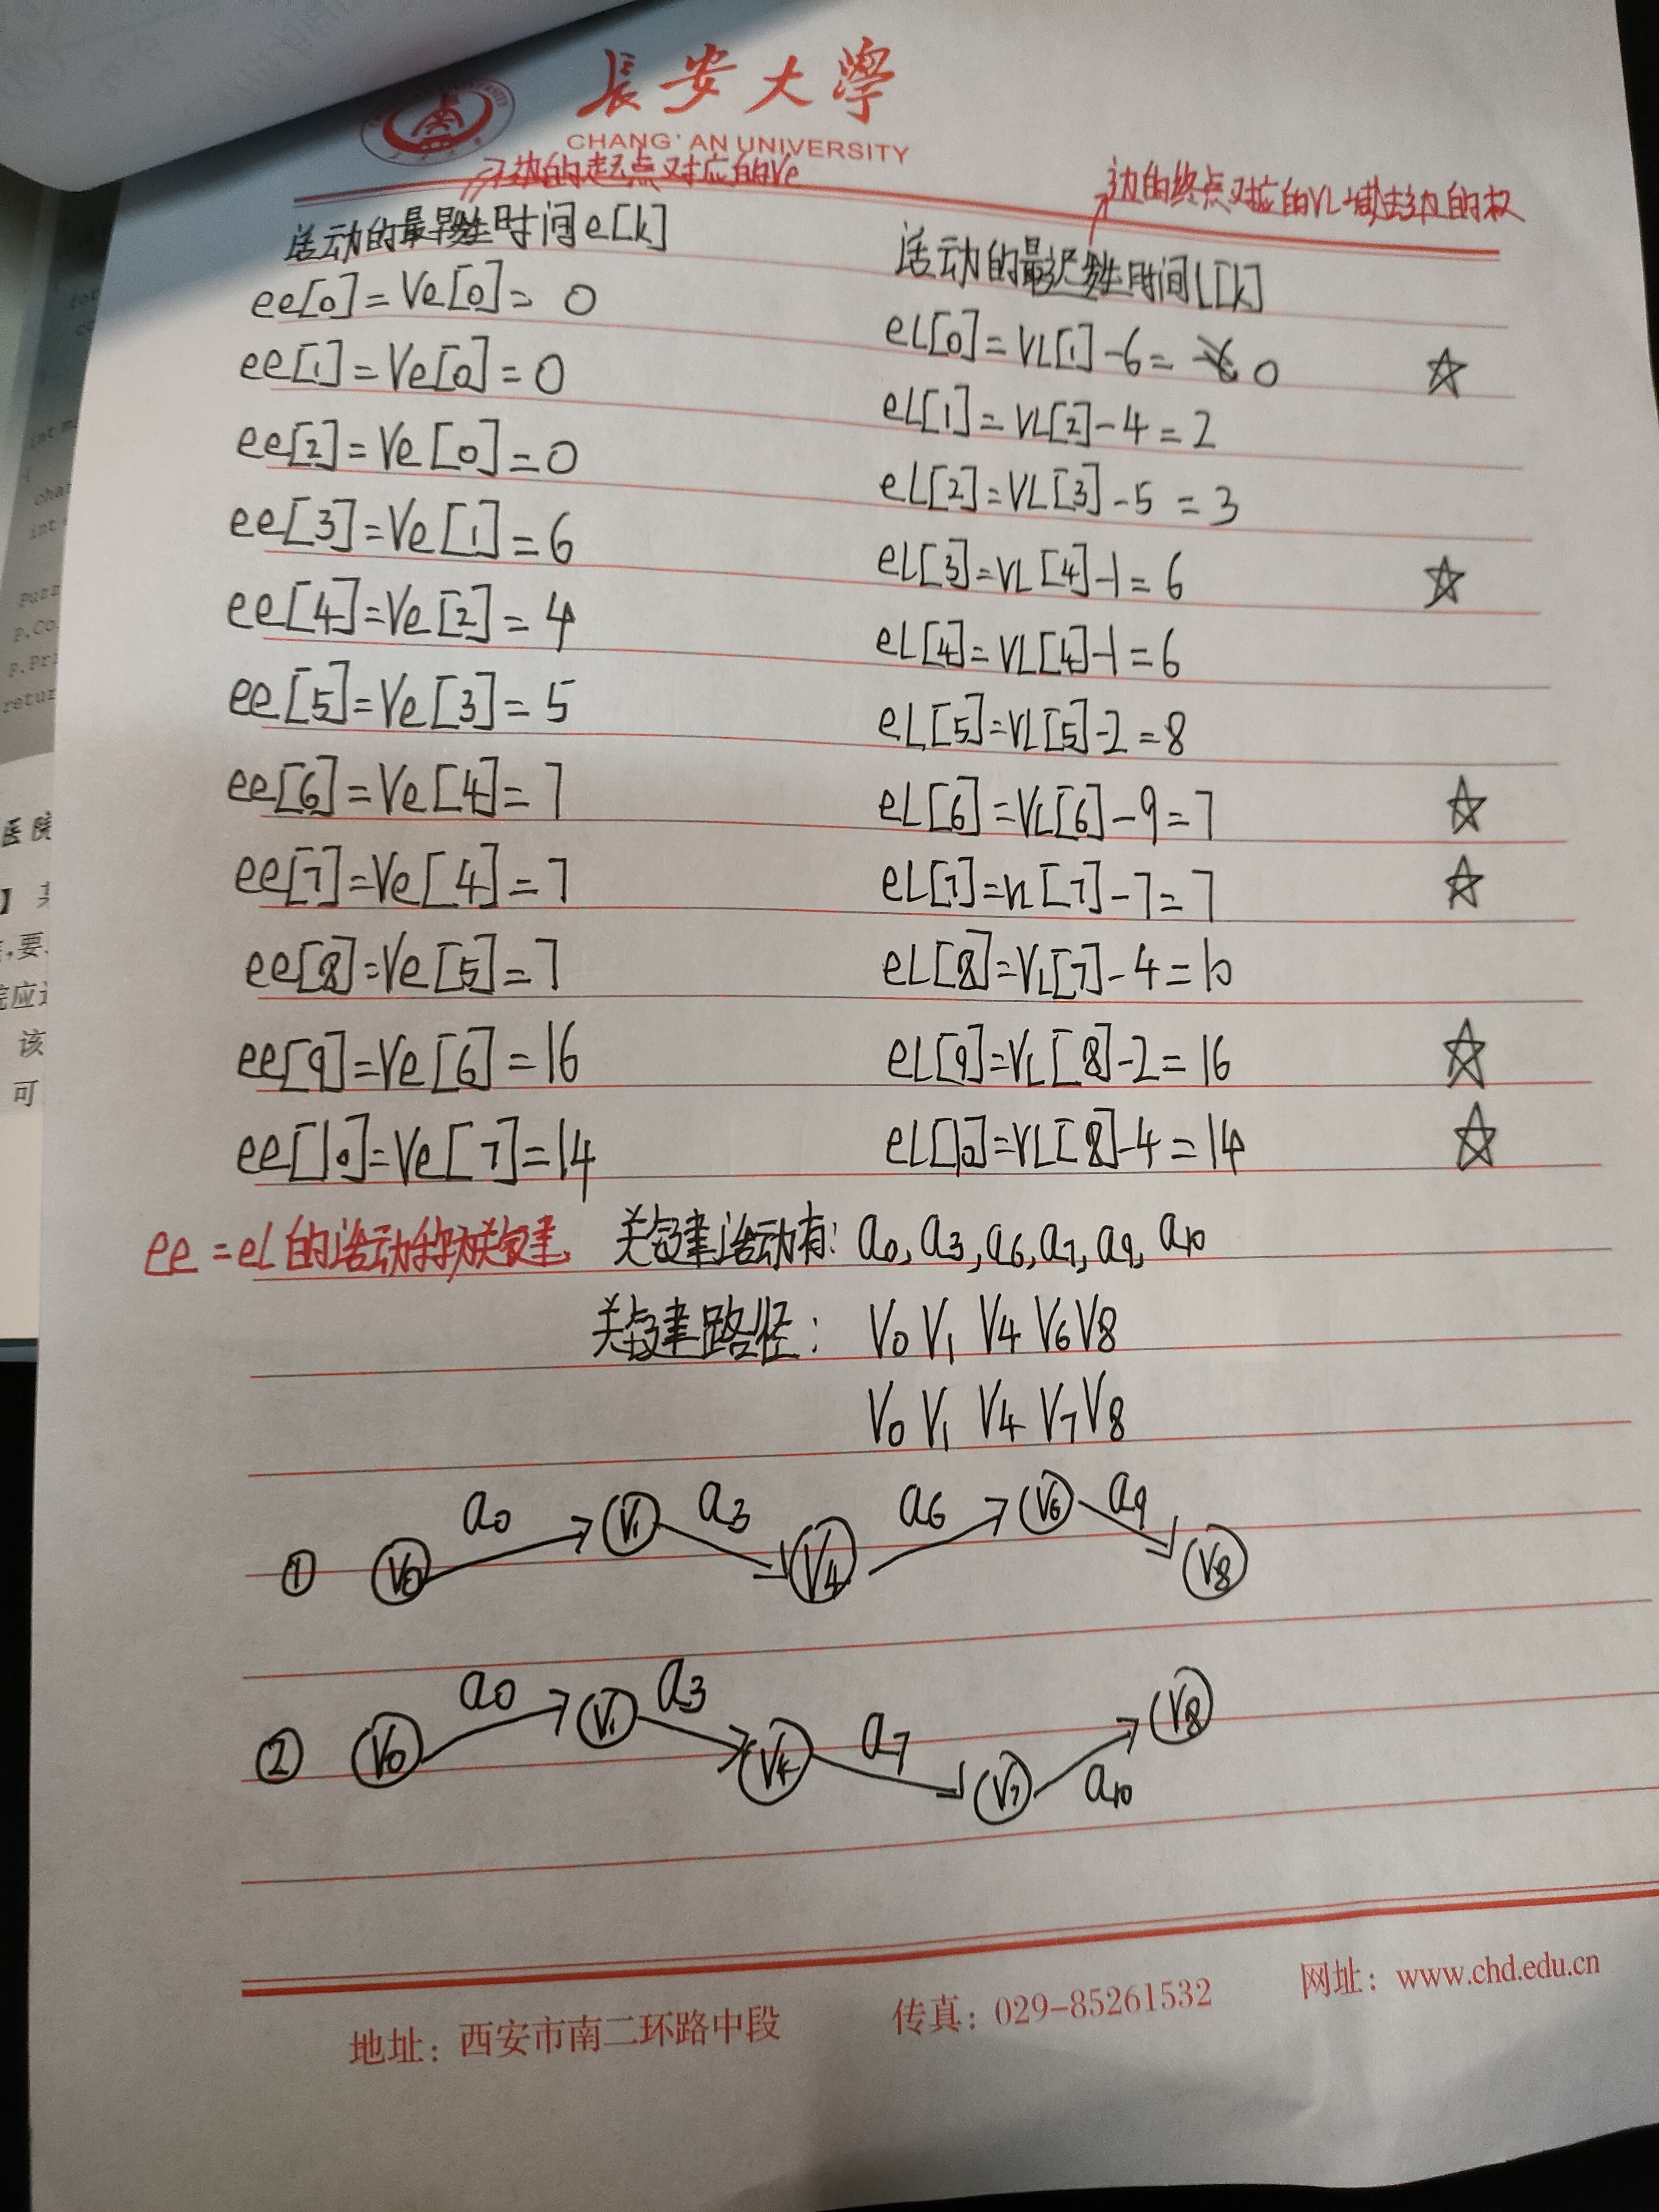 長安大學
CHANG'AN UNIVERSITY
边的起点对应的Ve
边的终点对应的VL-减去边的权
活动的最早发生时间e[k]
活动的最迟发生时间l[k]
ee[0]=Ve[0]=0
eL[0]=VL[1]-6=0
ee[1]=Ve[0]=0
eL[1]=VL[2]-4=2
ee[2]=Ve[0]=0
eL[2]=VL[3]-5=3
ee[3]=Ve[1]=6
eL[3]=VL[4]-1=6
ee[4]=Ve[2]=4
eL[4]=VL[4]-1=6
ee[5]=Ve[3]=5
eL[5]=VL[5]-2=8
ee[6]=Ve[4]=7
eL[6]=VL[6]-9=7
ee[7]=Ve[4]=7
eL[7]=VL[7]-7=7
ee[8]=Ve[5]=7
eL[8]=VL[7]-4=10
ee[9]=Ve[6]=16
eL[9]=VL[8]-2=16
ee[10]=Ve[7]=14
eL[10]=VL[8]-4=14
ee=eL的活动称为关键 关键活动有: a0, a3, a6, a7, a9, a10
关键路径: V0 V1 V4 V6 V8
V0 V1 V4 V7 V8
① V0 a0 V1 a3 V4 a6 V6 a9 V8
② V0 a0 V1 a3 V4 a7 V7 a10 V8
地址：西安市南二环路中段 传真：029-85261532 网址：www.chd.edu.cn
int
char
int
p.Co
p.Pri
retur
医院
该
可